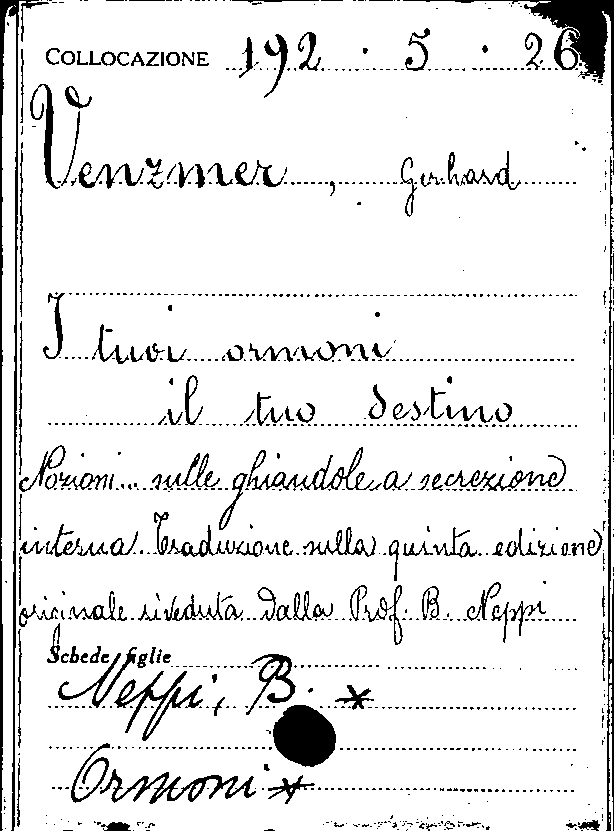 COLLOCAZIONE 192 · 5 · 26
Venzmer, Gerhard
I tuoi ormoni
il tuo destino
Nozioni... sulle ghiandole a secrezione
interna. Traduzione sulla quinta edizione
originale riveduta dalla Prof. B. Neppi
Schede figlie
Neppi, B. *
Ormoni *